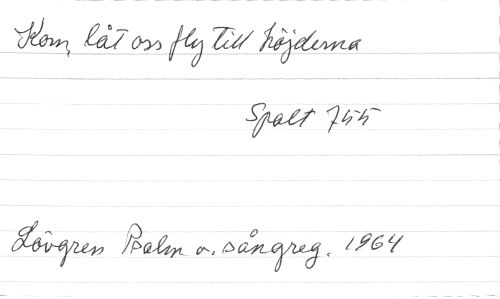 Kom, låt oss fly till höjderna
Spalt 755
Lövgren Psalm o. sångreg. 1964